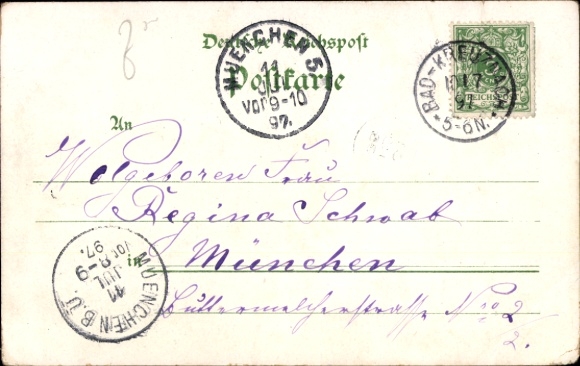 Deutsche Reichspost
Postkarte
MUENCHEN 5
11
JUL
Vor 9-10
97.
BAD-KREUZNACH
10 7
97
* 5-6N. *
REICHSPOST
An
Wolgeboren Frau
Regina Schwab
in München
Buttermelcherstrasse Nro 2
/2.
MUENCHEN B.U.
11
JUL
Vor 8-9
97.